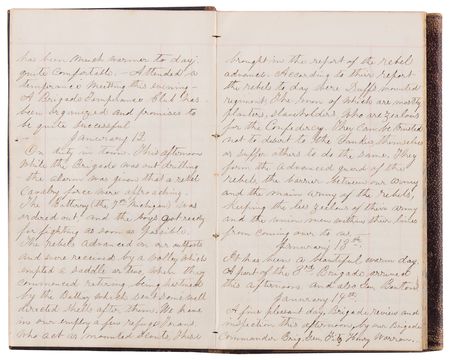 has been much warmer to day,
quite comfortable. - Attended a
temperance meeting this evening -
A Brigade Temperance Club has
been organized and promises to
be quite successful
January 12
On duty in town. This afternoon
while the Brigade was out drilling
the alarm was given that a rebel
Cavalry force were approaching.
The Battery (the 7th Michigan) was
ordered out and the boys got ready
for fighting as soon as possible.
The rebels advanced on our outposts
and were received by a volley which
emptied a saddle or two when they
commenced retiring being hastened
by the Battery which sent some well
directed shells after them. We have
in our employ a few refugee Texans
who act as mounted scouts. These
brought in the report of the rebel
advance. According to their report
the rebels to day were Duffs mounted
regiment the men of which are mostly
planters, slaveholders who are zealous
for the Confederacy. They can be trusted
not to desert to the Yankees themselves
or suffer others to do the same. They
form the advanced guard of the
rebels, the barrier between our army
and the main army of the rebels,
keeping the less zealous of their army
and the union men within their lines
from coming over to us.
January 18th
It has been a beautiful warm day.
A part of the 3rd Brigade arrived
this afternoon and also Gen Benton
January 19th
A fine pleasant day. Brigade review and
inspection this afternoon by our Brigade
Commander Brig. Gen Fitz Henry Warren.